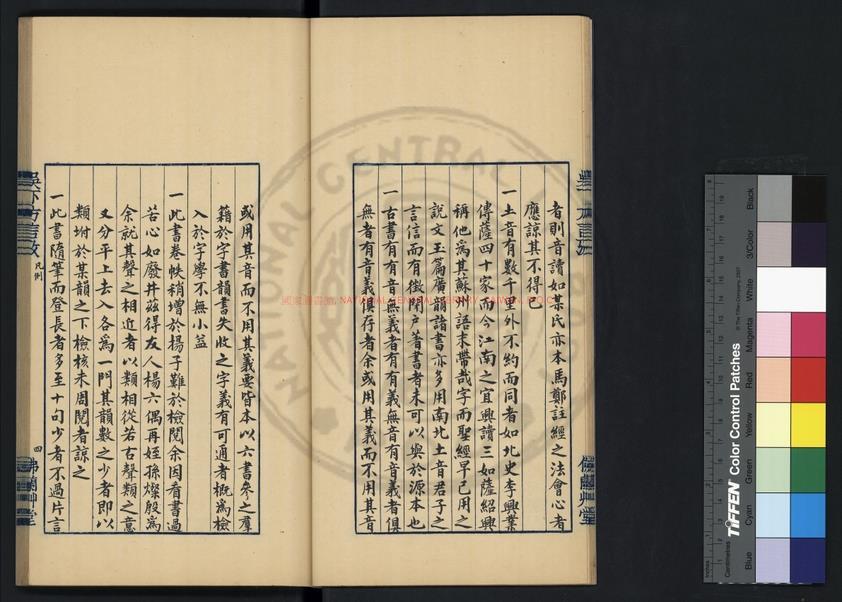 者則音讀如某氏亦本馬鄭註經之法會心者
應諒其不得已
一土音有數千里外不約而同者如北史李興業
傳薩四十家而今江南之宜興讀三如薩紹興
稱他為其蘇州語末帶哉字而聖經早已用之
說文玉篇廣韻諸書亦多用南北土音君子之
言信而有徵閉戶著書者未可以與於源本也
一古書有有音無義者有有義無音有音義者俱
無者有音義俱存者余或用其義而不用其音
或用其音而不用其義要皆本以六書參之羣
籍於字書韻書失收之字義有可通者概為檢
入於字學不無小益
一此書卷帙稍增於揚子難於檢閱余因看書過
苦心如廢井茲得友人楊六偶再姪孫燦殷為
余就其聲之相近者以類相從若古聲類之意
又分平上去入各為一門其韻數之少者即以
類坿於某韻之下檢核未周閱者諒之
一此書隨筆而登長者多至十句少者不過片言
吳下方言攷
凡例
四
NATIONAL CENTRAL LIBRARY
國家圖書館 NATIONAL CENTRAL LIBRARY, TAIWAN, R.O.C.
TIFFEN Color Control Patches
© The Tiffen Company, 2007
Inches
Centimetres
Blue
Cyan
Green
Yellow
Red
Magenta
White
3/Color
Black